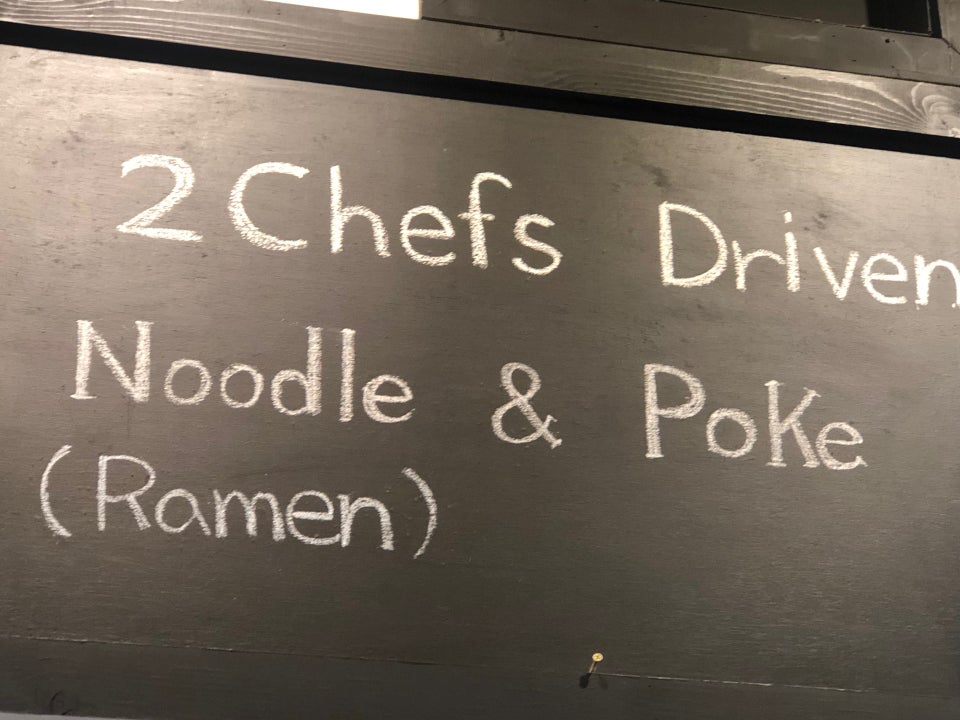 2 Chefs Driven
Noodle & Poke
(Ramen)